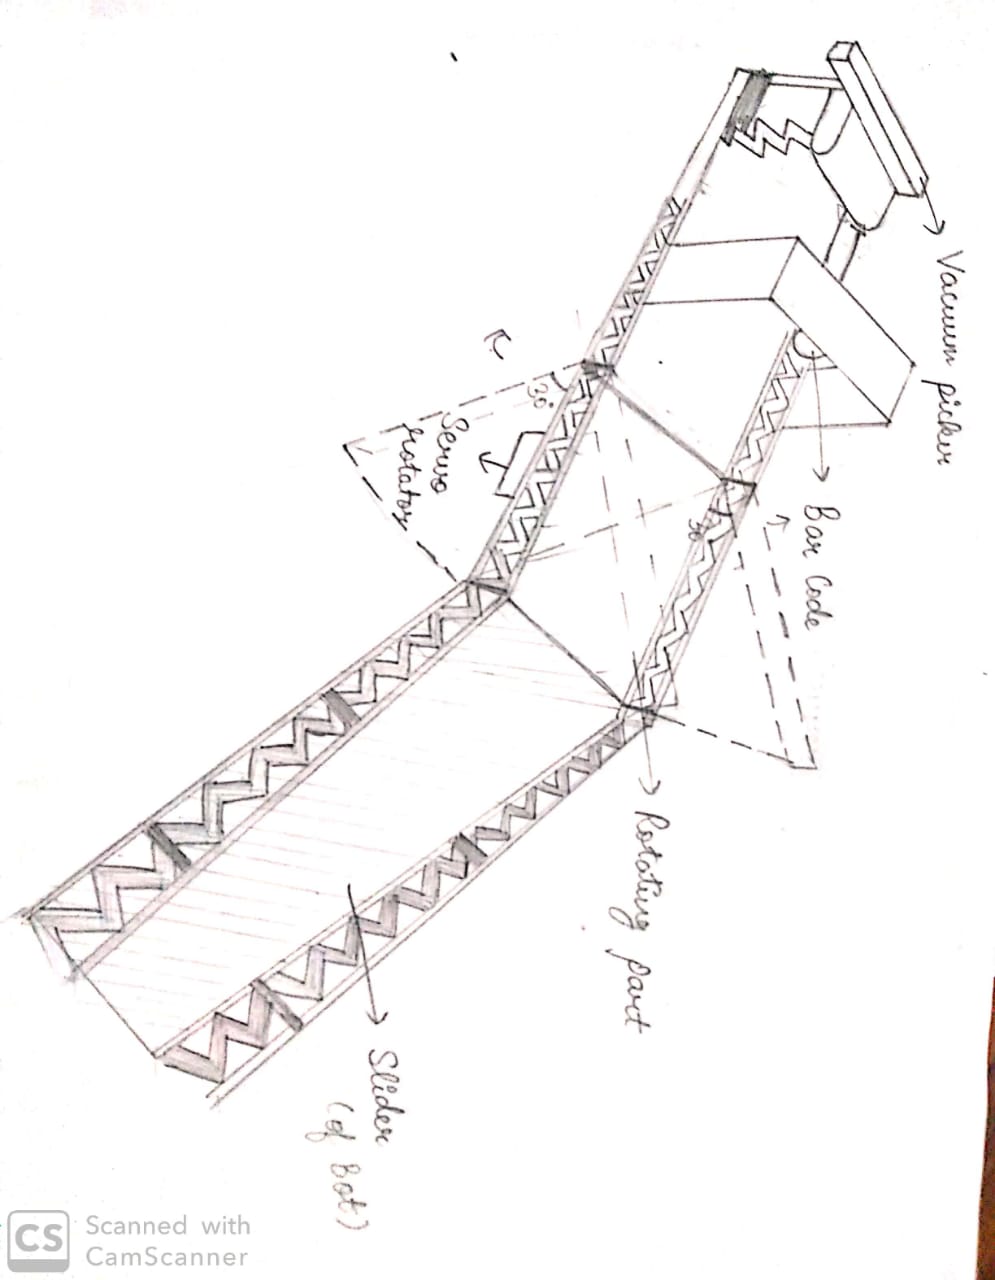 Vacuum picker
Bar Code
30°
Servo
rotator
30°
Rotating part
Slider
(of Bot)
CS Scanned with
CamScanner